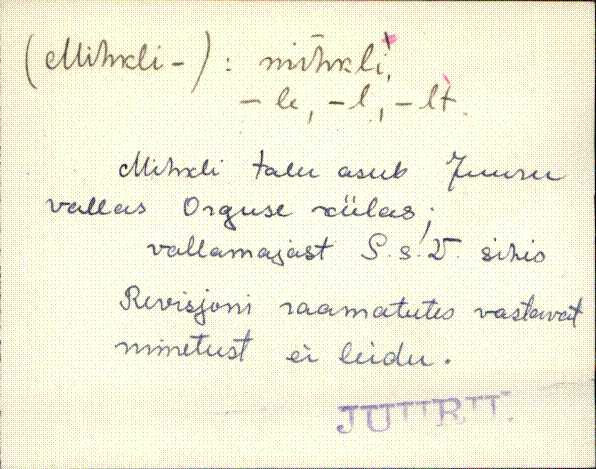 (Mihkli-): mihkli,
-le, -l, -lt.
Mihkli talu asub Juuru
vallas Orguse külas;
vallamajast S.s.V. sihis
Revisjoni raamatutes vastavat
nimetust ei leidu.
JUURU.